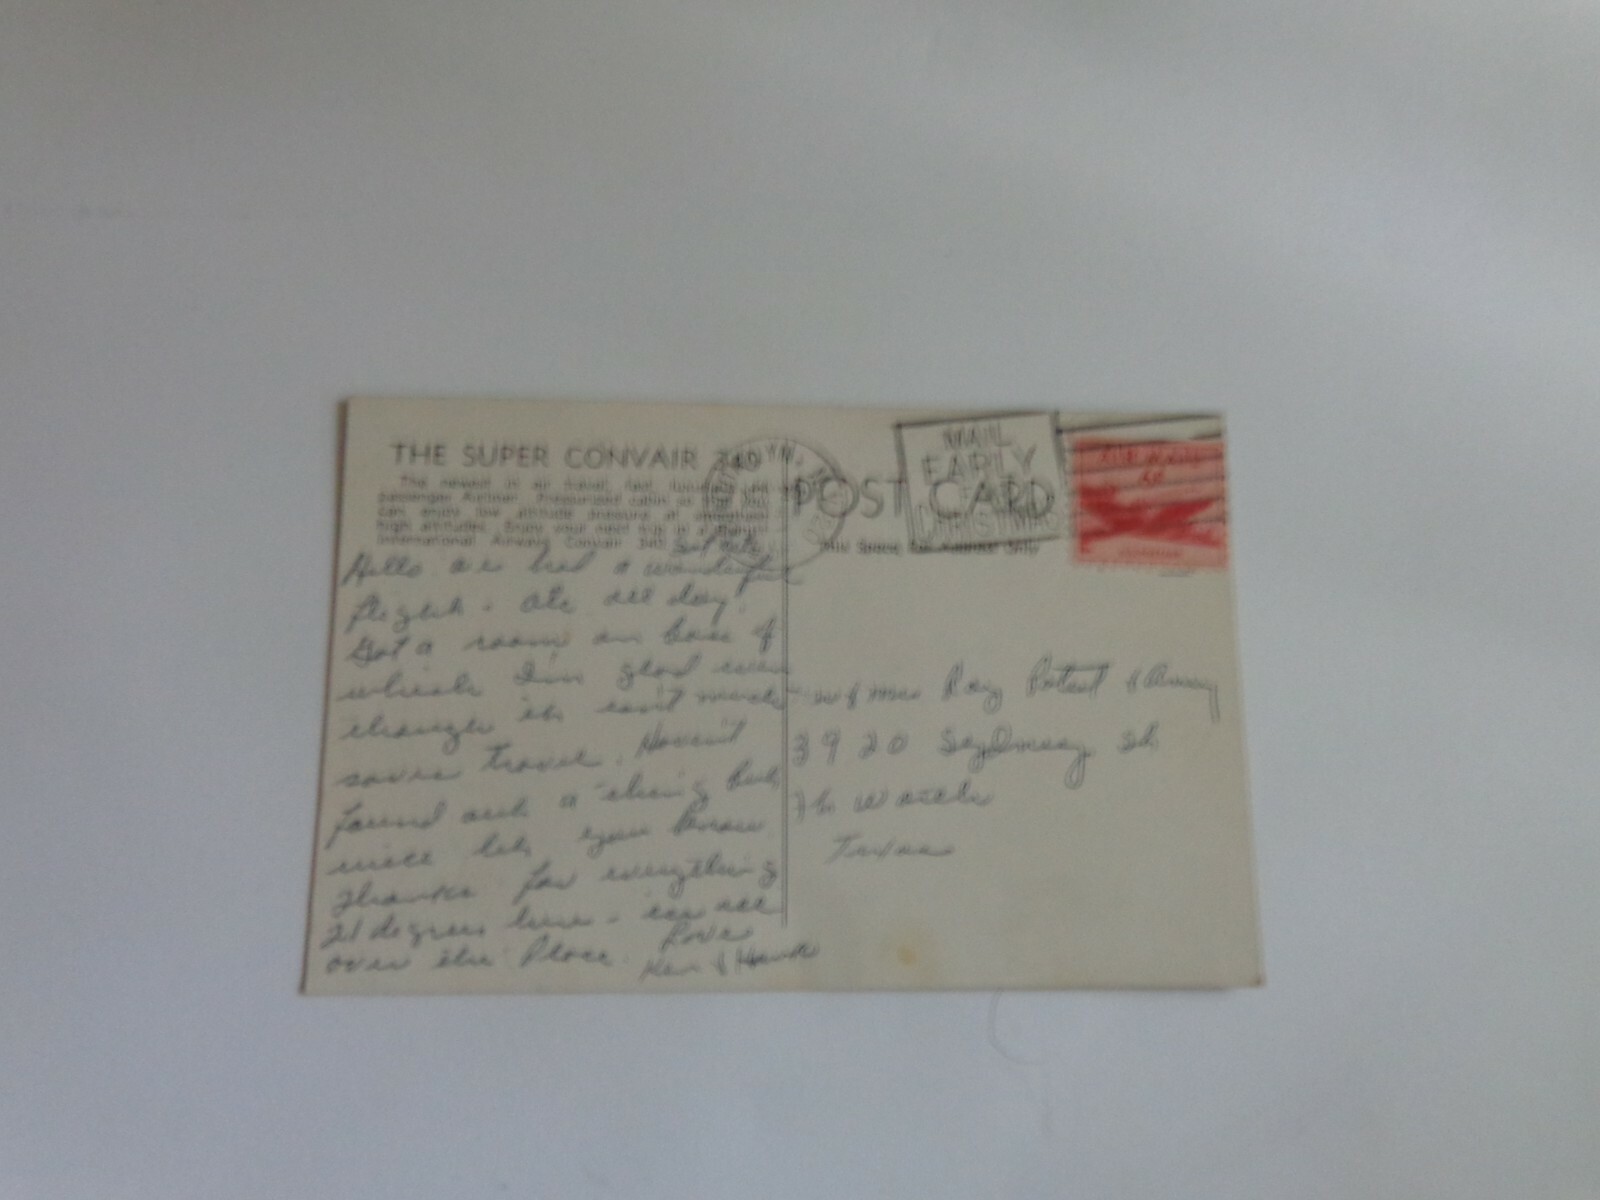 THE SUPER CONVAIR 340
The newest in air travel, fast, luxurious
passenger Airliner. Pressurized cabin so that you
can enjoy low altitude pressure at
high altitudes. Enjoy your next trip in a
International Airways Convair 340
POST CARD
This Space for Address Only
MAIL
EARLY
FOR
CHRISTMAS
AIR MAIL
6¢
Hello we had a wonderful
flight. Ate all day.
Got a room on base of
which I'm glad even
though it can't much
travel. Haven't
found out a thing but
will let you know
Thanks for everything
21 degrees here - ice all
over the place.
Love
Ken & Hank
Mr & Mrs Ray
3920 Sydney St
Ft Worth
Texas